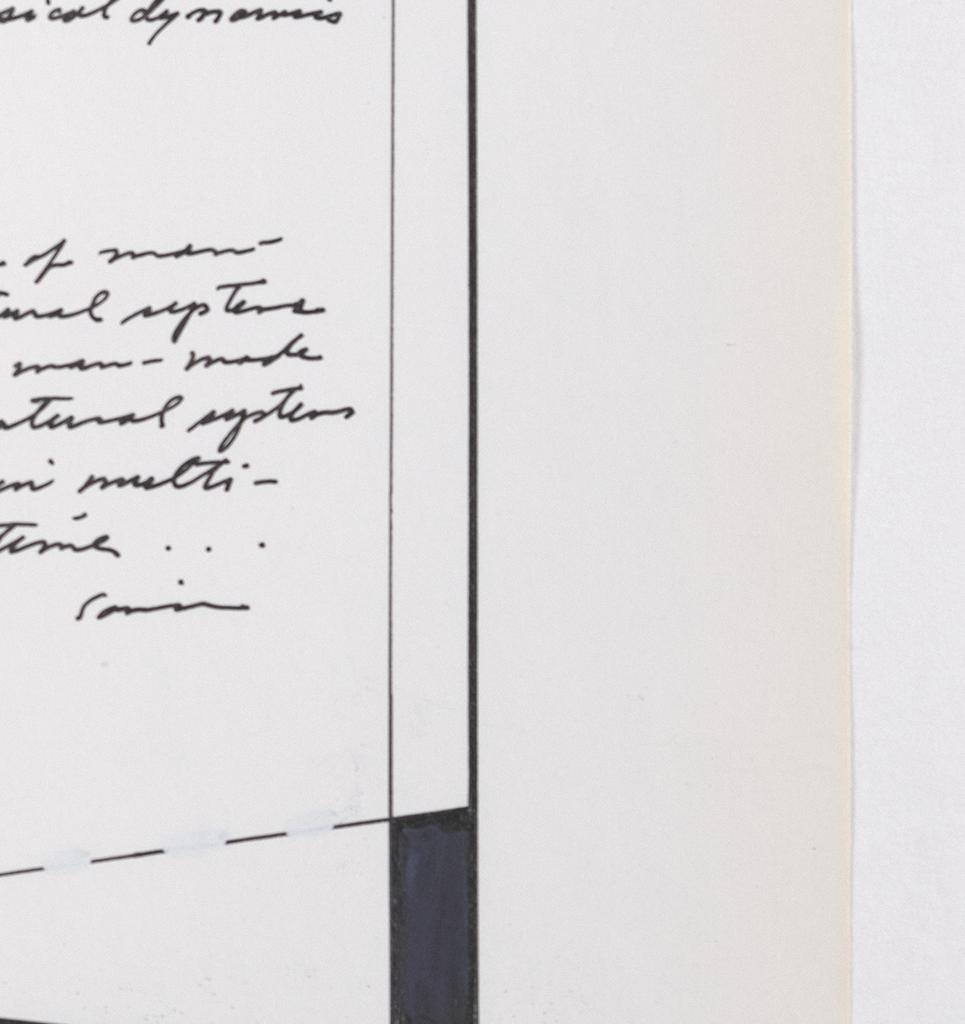 sical dynamics
of man-
tural systems
man-made
atural systems
in multi-
time . . .